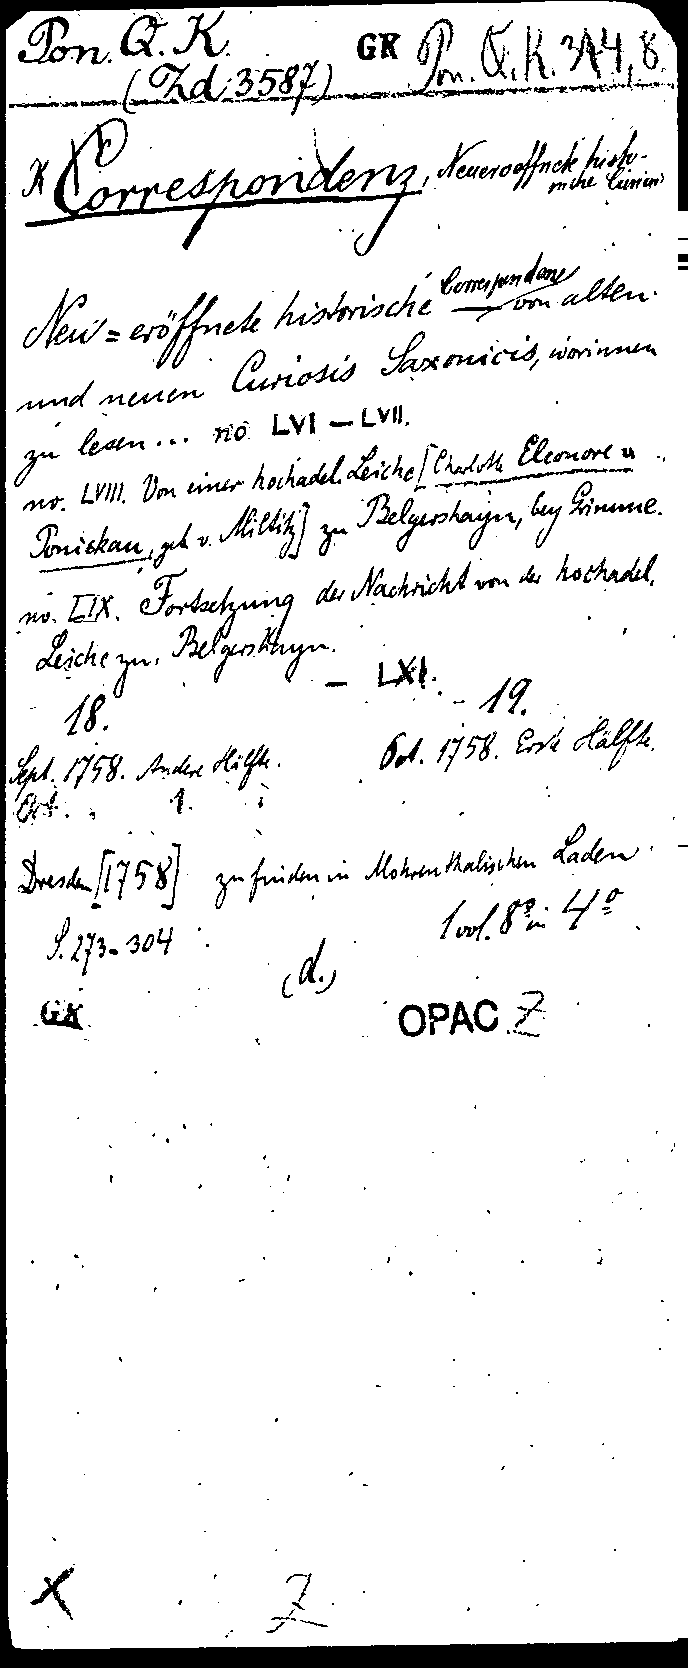 Pon. Q. K. GK Pon. Q. K. 344, 8
(Zd 3587)
Correspondenz, Neueroeffnete histo-
rische
Neu=eröffnete historische Correspondenz von alten
und neuen Curiosis Saxonicis, worinnen
zu lesen... no LVI – LVII.
no. LVIII. Von einer hochadel. Leiche [Charlotte Eleonore v.
Ponickau, geb v. Miltitz] zu Belgershayn, bey Grimme.
no. LIX. Fortsetzung der Nachricht von der hochadel.
Leiche zu Belgershayn.
– LXI.
18. 19.
Sept. 1758. Andere Hälfte. Oct. 1758. Erste Hälfte.
Oct. " 1. "
Dresden [1758] zu finden in Mohrenthalischen Laden
S. 273-304 1 vol. 8° in 4°
(d.)
GK OPAC Z
X Z